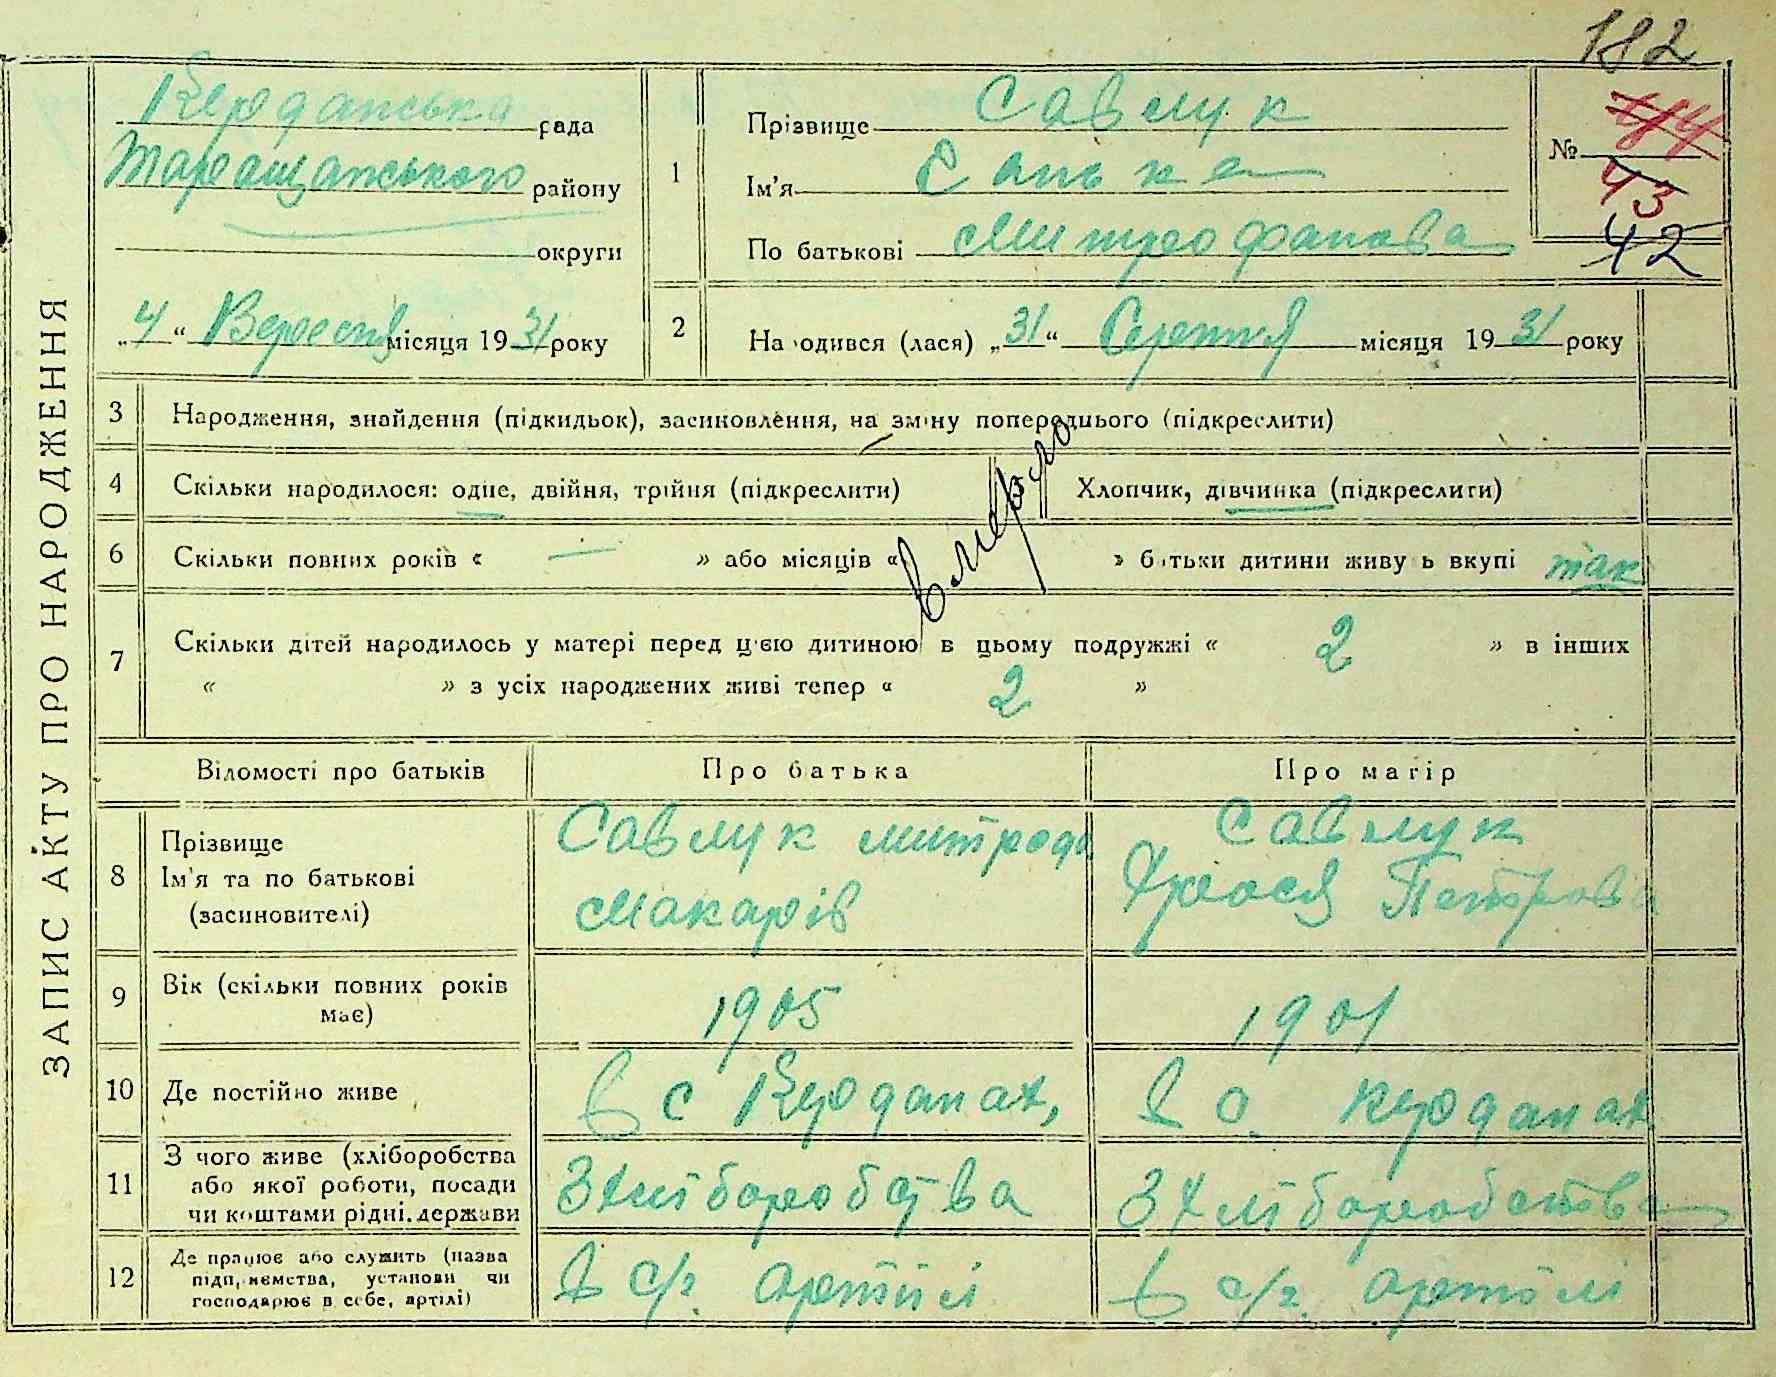 182
Керданська рада
Таращанського району
округи
„4“ Вересня місяця 1931 року
1
Прізвище Савлук
Ім'я Ганька
По батькові Митрофанова
№ 144
43
42
2
На одився (лася) „31“ Серпня місяця 1931 року
ЗАПИС АКТУ ПРО НАРОДЖЕННЯ
3 Народження, знайдення (підкидьок), засиновлення, на зміну попереднього (підкреслити)
4 Скільки народилося: одне, двійня, трійня (підкреслити) Хлопчик, дівчинка (підкреслити)
вмерло
6 Скільки повних років « — » або місяців « » батьки дитини живу ь вкупі так
7 Скільки дітей народилось у матері перед цією дитиною в цьому подружжі « 2 » в інших
« » з усіх народжених живі тепер « 2 »
Відомості про батьків Про батька Про матір
8 Прізвище
Ім'я та по батькові
(засиновителі)
Савлук митроф
Макарів
Савлук
Фрося Петрова
9 Вік (скільки повних років
має)
1905
1901
10 Де постійно живе
в с Керданах,
в с. Керданах
11 З чого живе (хліборобства
або якої роботи, посади
чи коштами рідні. держави
З хліборобства
З хліборобства
12 Де працює або служить (назва
підп, иємства, установи чи
господарює в себе, артілі)
в с/г. артілі
в с/г. артілі